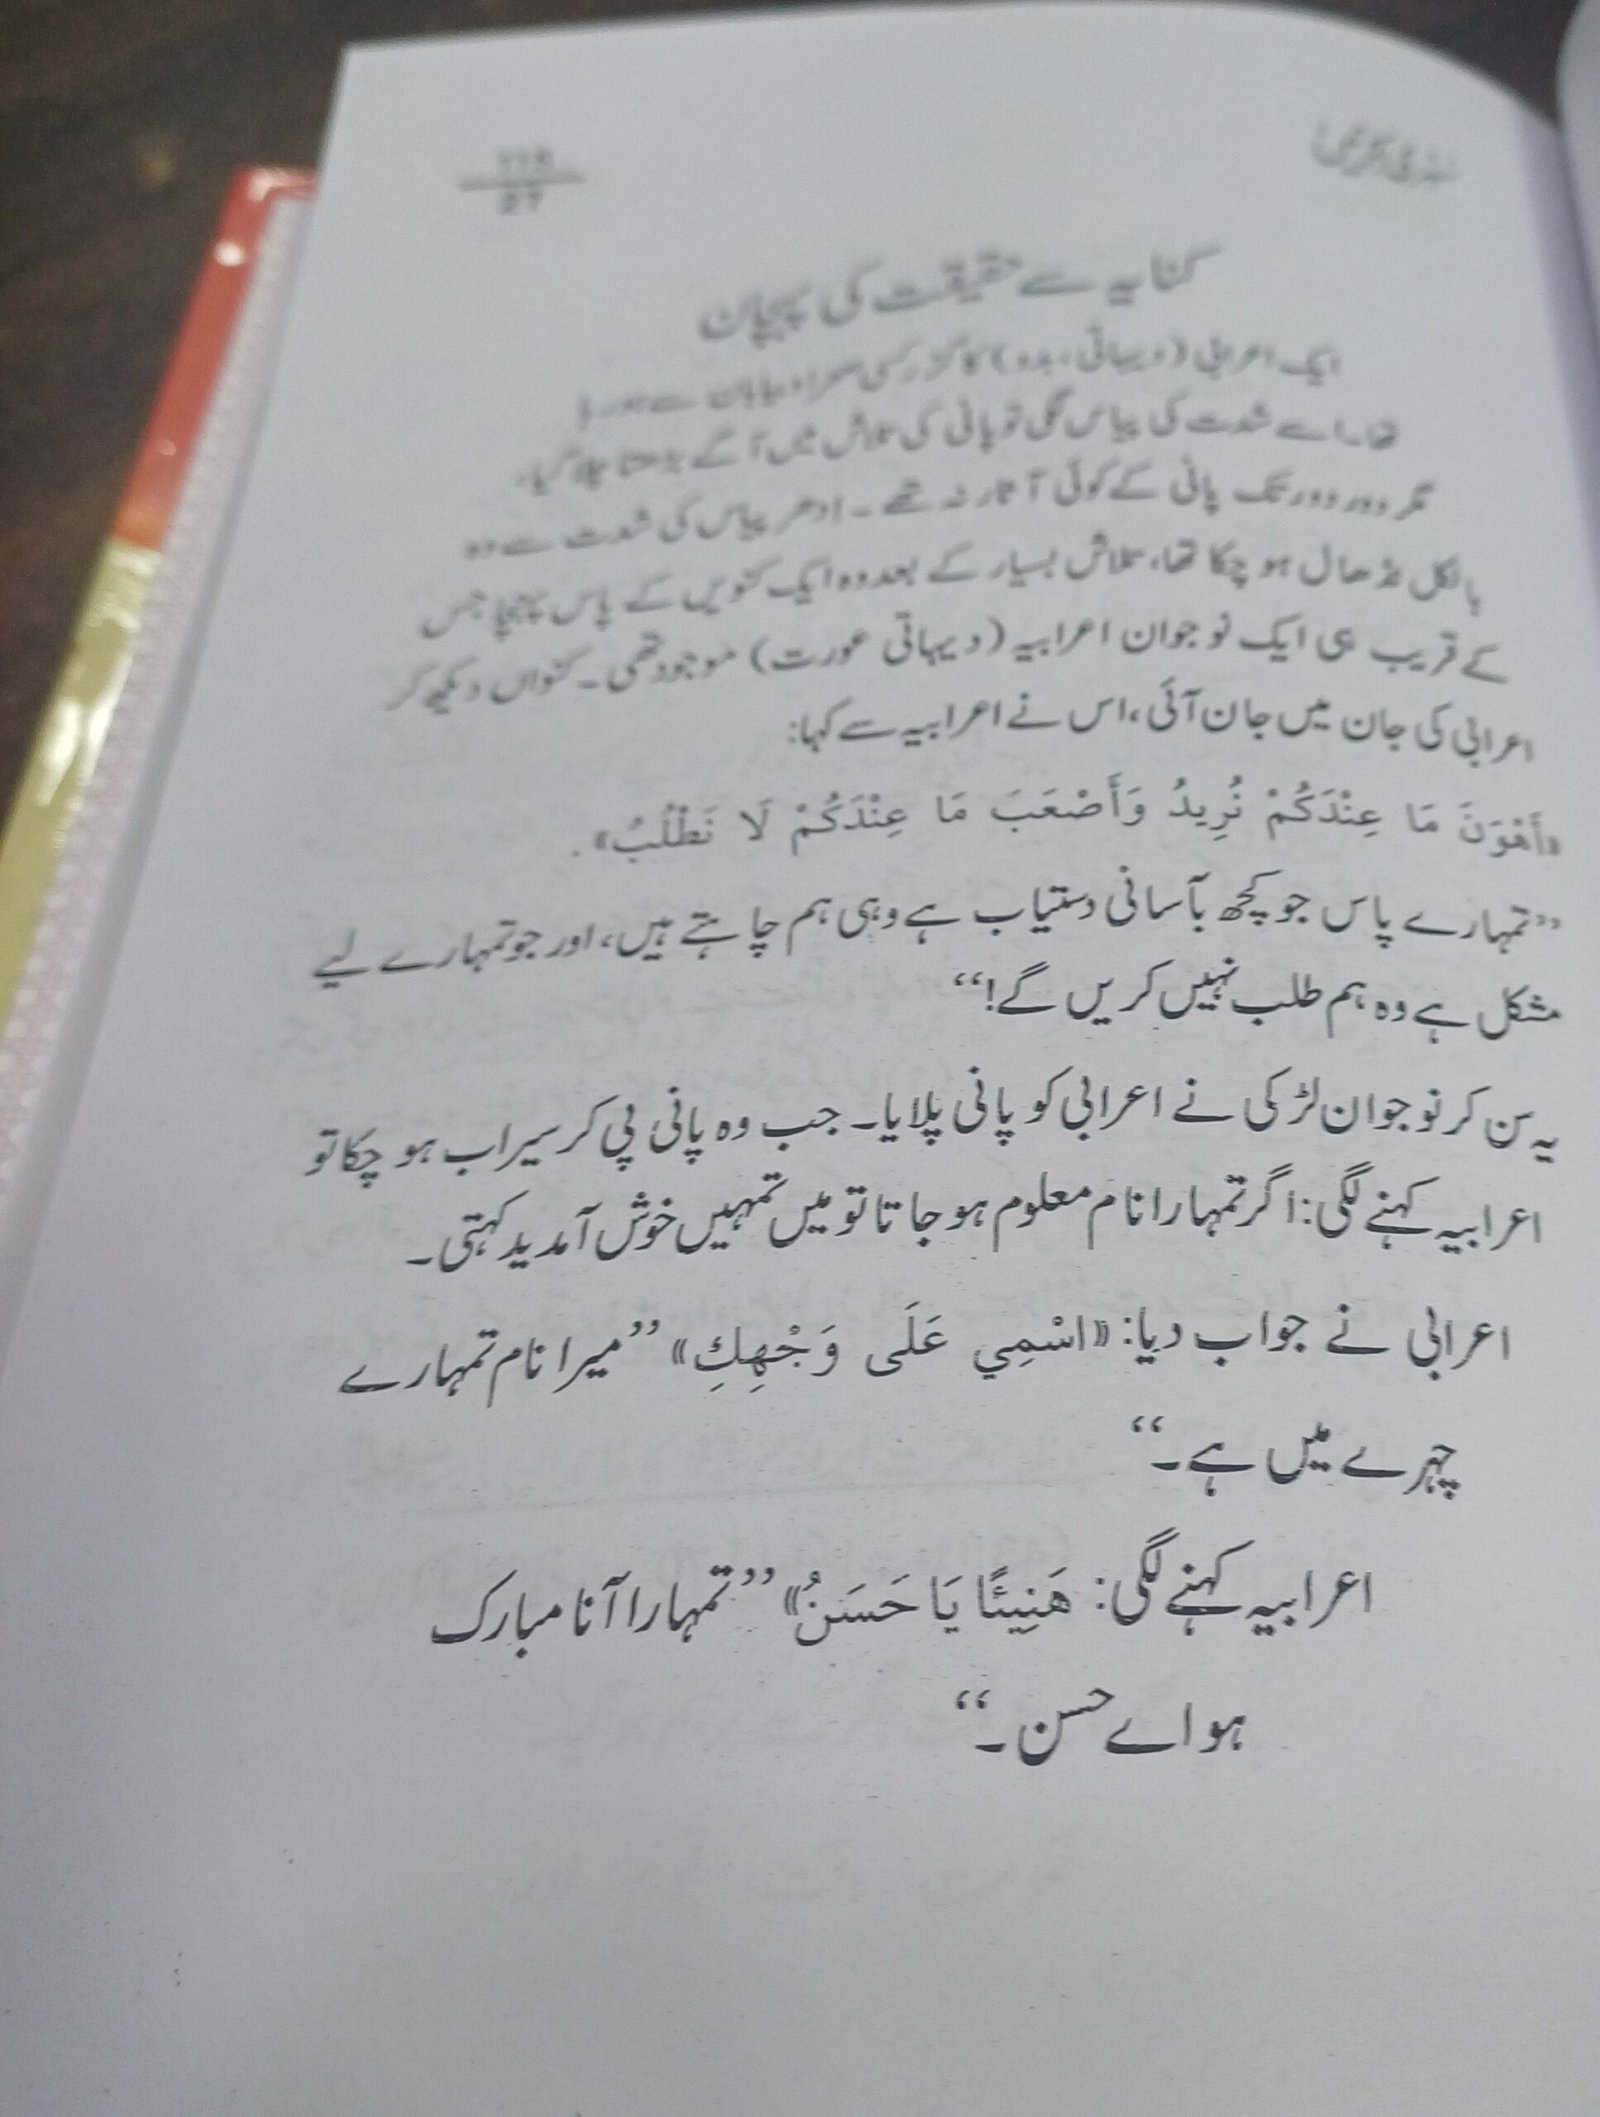 سنہری کرنیں
115
27
کنایہ سے حقیقت کی پہچان
ایک اعرابی (دیہاتی، بدو) کا گزر کسی صحرا و بیابان سے ہو رہا
تھا۔ اسے شدت کی پیاس لگی تو پانی کی تلاش میں آگے بڑھتا چلا گیا،
مگر دور دور تک پانی کے کوئی آثار نہ تھے۔ ادھر پیاس کی شدت سے وہ
بالکل نڈھال ہو چکا تھا، تلاش بسیار کے بعد وہ ایک کنویں کے پاس پہنچا جس
کے قریب ہی ایک نوجوان اعرابیہ (دیہاتی عورت) موجود تھی۔ کنواں دیکھ کر
اعرابی کی جان میں جان آئی، اس نے اعرابیہ سے کہا:
«أَهْوَنَ مَا عِنْدَكُمْ نُرِيدُ وَأَصْعَبَ مَا عِنْدَكُمْ لَا نَطْلُبُ».
”تمہارے پاس جو کچھ بآسانی دستیاب ہے وہی ہم چاہتے ہیں، اور جو تمہارے لیے
مشکل ہے وہ ہم طلب نہیں کریں گے!“
یہ سن کر نوجوان لڑکی نے اعرابی کو پانی پلایا۔ جب وہ پانی پی کر سیراب ہو چکا تو
اعرابیہ کہنے لگی: اگر تمہارا نام معلوم ہو جاتا تو میں تمہیں خوش آمدید کہتی۔
اعرابی نے جواب دیا: «اسْمِي عَلَى وَجْهِكِ» ”میرا نام تمہارے
چہرے میں ہے۔“
اعرابیہ کہنے لگی: هَنِيئًا يَا حَسَنُ» ”تمہارا آنا مبارک
ہو اے حسن۔“